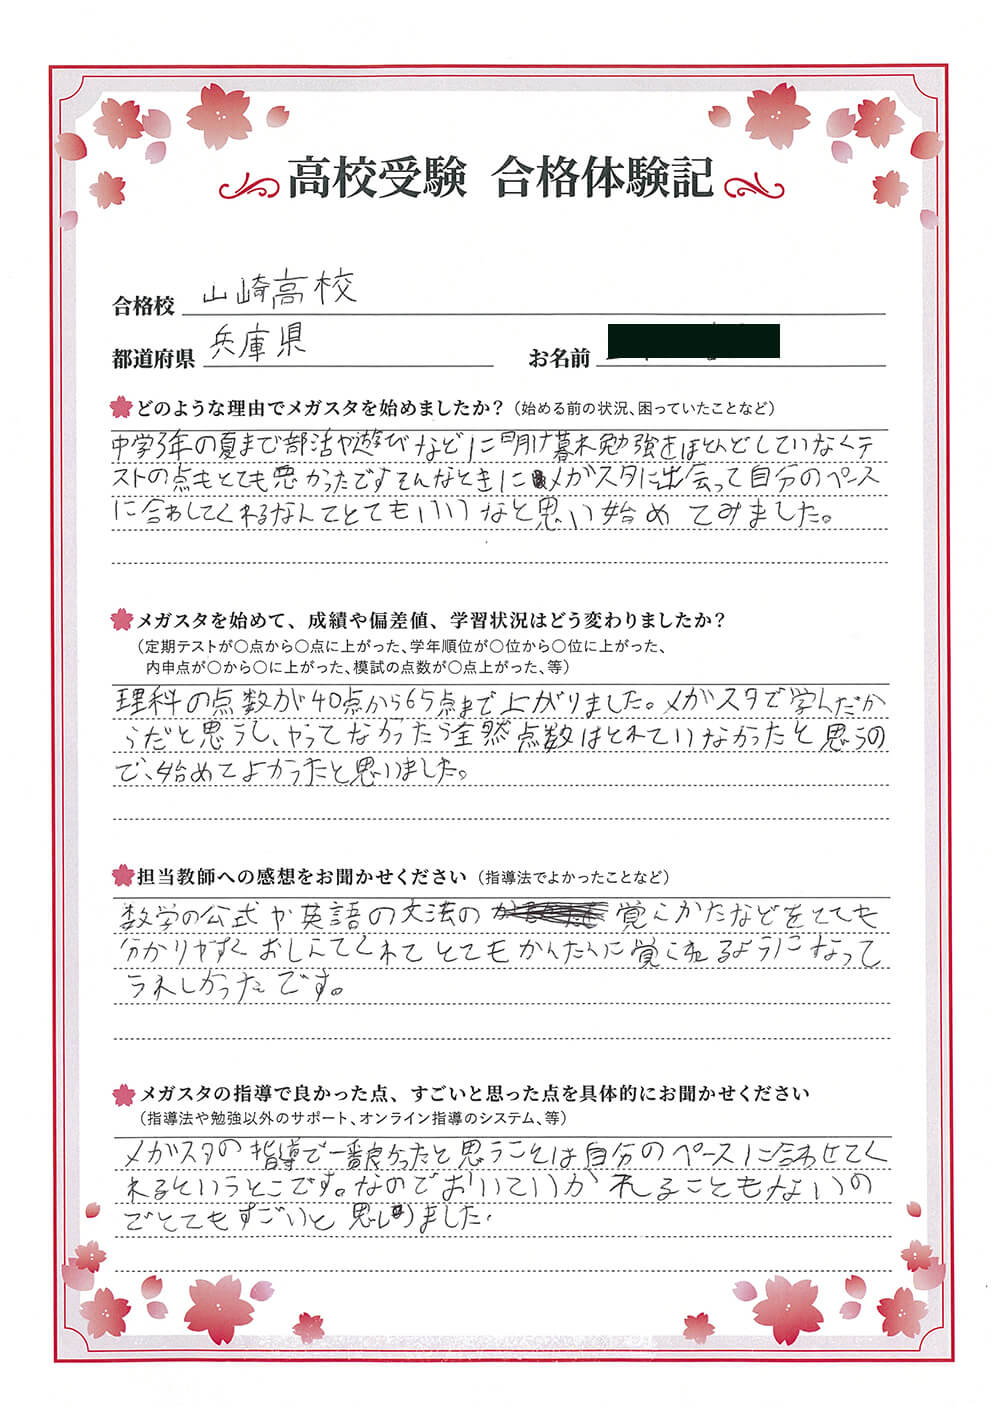 高校受験 合格体験記
合格校 山崎高校
都道府県 兵庫県 お名前
どのような理由でメガスタを始めましたか？（始める前の状況、困っていたことなど）
中学3年の夏まで部活や遊びなどに明け暮れ勉強をほとんどしていなくテ
ストの点もとても悪かったですそんなときにメガスタに出会って自分のペース
に合わしてくれるなんてとてもいいなと思い始めてみました。
メガスタを始めて、成績や偏差値、学習状況はどう変わりましたか？
（定期テストが〇点から〇点に上がった、学年順位が〇位から〇位に上がった、
内申点が〇から〇に上がった、模試の点数が〇点上がった、等）
理科の点数が40点から65点まで上がりました。メガスタで学んだか
らだと思うし、やってなかったら全然点数はとれていなかったと思うの
で、始めてよかったと思いました。
担当教師への感想をお聞かせください（指導法でよかったことなど）
数学の公式や英語の文法の 覚えかたなどをとても
分かりやすくおしえてくれてとてもかんたんに覚えれるようになって
うれしかったです。
メガスタの指導で良かった点、すごいと思った点を具体的にお聞かせください
（指導法や勉強以外のサポート、オンライン指導のシステム、等）
メガスタの指導で一番良かったと思うことは自分のペースに合わせてく
れるというとこです。なのでおいていかれることもないの
でとてもすごいと思いました.